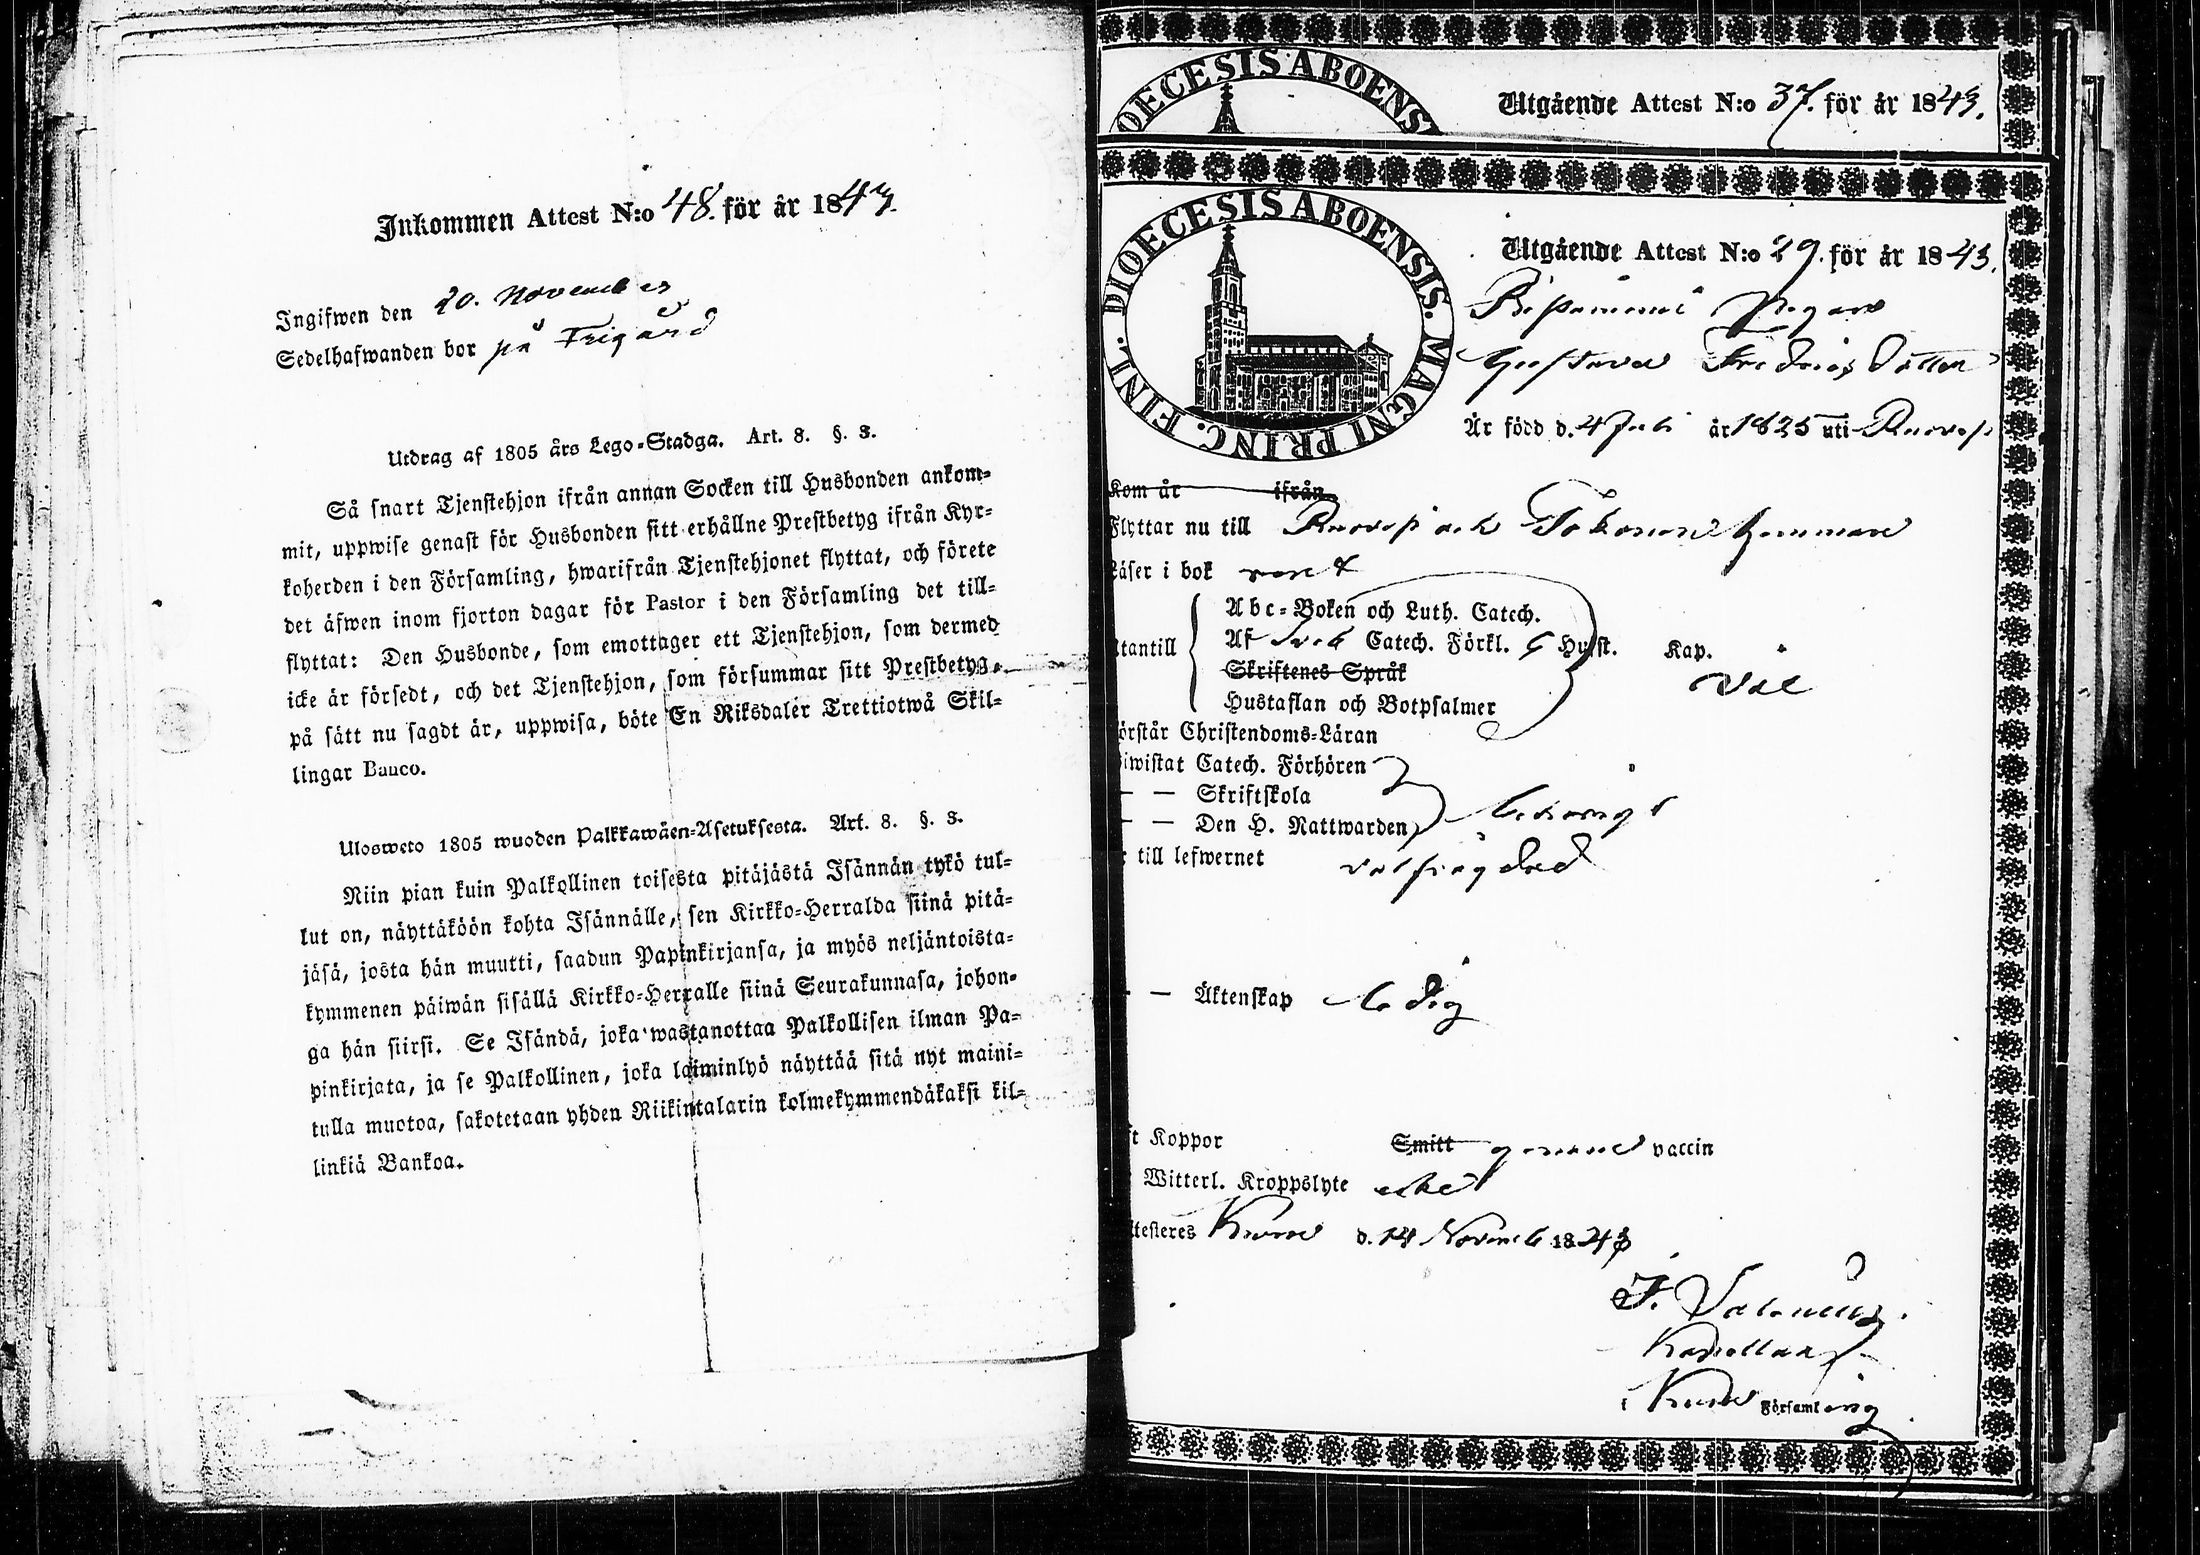 Inkommen Attest N:o 48. för år 1843.
Ingifwen den 20. November
Sedelhafwanden bor på Frigård
Utdrag af 1805 års Lego-Stadga. Art. 8. §. 3.
Så snart Tjenstehjon ifrån annan Socken till Husbonden ankom-
mit, uppwise genast för Husbonden sitt erhållne Prestbetyg ifrån Kyr-
koherden i den Församling, hwarifrån Tjenstehjonet flyttat, och förete
det äfwen inom fjorton dagar för Pastor i den Församling det till-
flyttat: Den Husbonde, som emottager ett Tjenstehjon, som dermed
icke är försedt, och det Tjenstehjon, som försummar sitt Prestbetyg,
på sätt nu sagdt är, uppwisa, böte En Riksdaler Trettiotwå Skil-
lingar Banco.
Ulosweto 1805 wuoden Palkkawäen-Asetuksesta. Art. 8. §. 3.
Niin pian kuin Palkollinen toisesta pitäjästä Isännän tykö tul-
lut on, näyttäköön kohta Isännälle, sen Kirkko-Herralda siinä pitä-
jäsä, josta hän muutti, saadun Papinkirjansa, ja myös neljäntoista-
kymmenen päiwän sisällä Kirkko-Herralle siinä Seurakunnasa, johon-
ga hän siirsi. Se Isändä, joka wastanottaa Palkollisen ilman Pa-
pinkirjata, ja se Palkollinen, joka laiminlyö näyttää sitä nyt maini-
tulla muotoa, sakotetaan yhden Riikintalarin kolmekymmendäkaksi kil-
linkiä Bankoa.
DIOECESIS ABOENS
Utgående Attest N:o 37. för år 1843.
DIOECESIS ABOENSIS. MAGNI PRINC. FINL.
Utgående Attest N:o 29. för år 1843.
Pigan
Gustava Fredrics Dotter
Är född d. 4 Juli år 1825 uti
Kom år ifrån
Flyttar nu till och
Läser i bok
Abc-Boken och Luth. Catech.
Utantill Af Sveb Catech. Förkl. 6 Hufst. Kap.
Skriftenes Språk väl
Hustaflan och Botpsalmer
örstår Christendoms-Läran
iwistat Catech. Förhören
— — Skriftskola
— — Den H. Nattwarden
till lefwernet välfrägdad
— Äktenskap ledig
ft Koppor Smitt genom vaccin
Witterl. Kroppslyte
ttesteres d. 14 Novemb 1843
Kapellan
i Församling